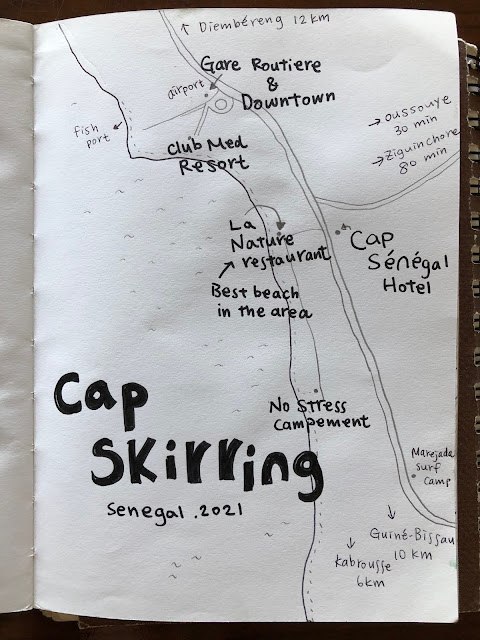 Diembéreng 12km
Gare Routiere
&
Downtown
airport
fish
port
Club Med
Resort
oussouye
30 min
Ziguinchore
80 min
La
Nature
restaurant
Best beach
in the area
Cap
Sénégal
Hotel
No Stress
Campement
Cap
Skirring
Senegal .2021
Marejada
surf
camp
Guiné-Bissau
10 km
Kabrousse
6km